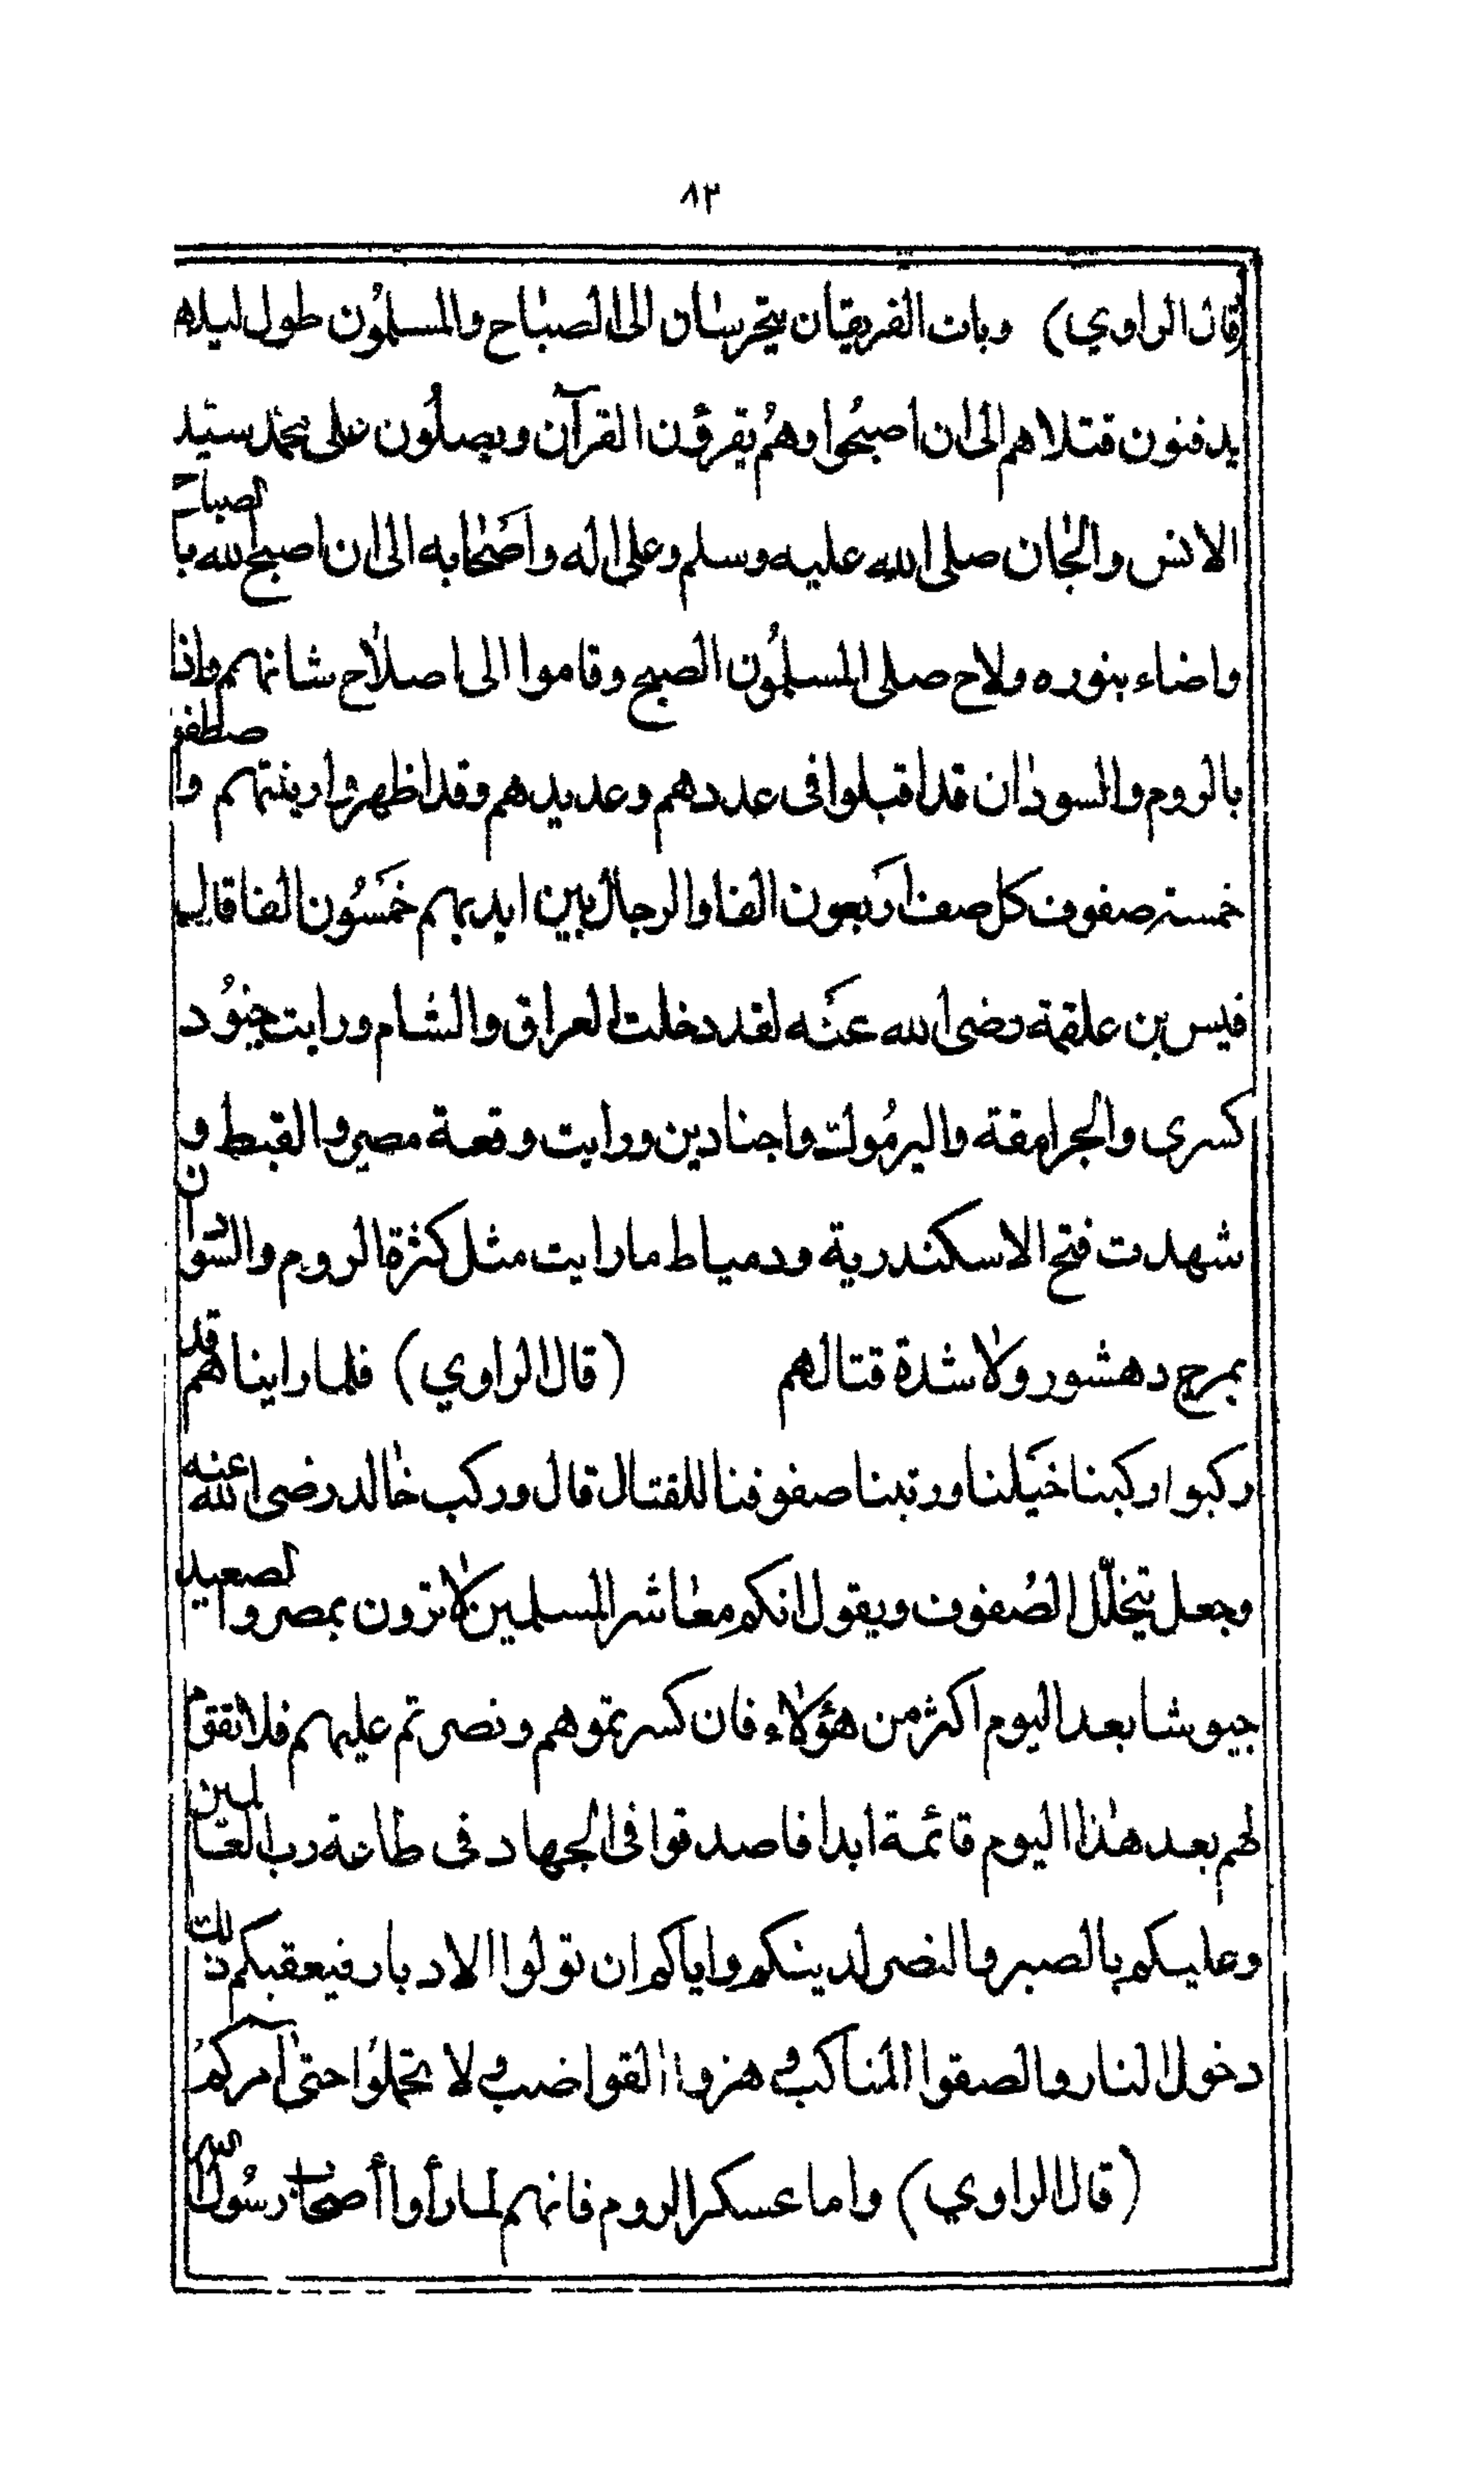 ٨٢
(قال الراوي) وبات الفريقان يتحرسان الى الصباح والمسلمون طول ليلهم
يدفنون قتلاهم الى ان اصبحوا وهم يقرؤن القرآن ويصلون على محمد سيد
الانس والجان صلى الله عليه وسلم وعلى اله واصحابه الى ان اصبح الله بالصباح
واضاء بنوره ولاح صلى المسلمون الصبح وقاموا الى اصلاح شانهم واذا
بالروم والسودان قد اقبلوا فى عددهم وعديدهم وقد اظهروا زينتهم واصطفوا
خمسة صفوف كل صف اربعون الفا والرجال بين ايديهم خمسون الفا قال
قيس بن علقمة رضى الله عنه لقد دخلت العراق والشام ورايت جنود
كسرى والجرامقة واليرموك واجنادين ورايت وقعة مصر والقبط و
شهدت فتح الاسكندرية ودمياط ما رايت مثل كثرة الروم والسودان
بمرج دهشور ولا شدة قتالهم (قال الراوي) فلما رايناهم قد
ركبوا ركبنا خيلنا ورتبنا صفوفنا للقتال قال وركب خالد رضى الله عنه
وجعل يتخلل الصفوف ويقول انكم معاشر المسلمين لا ترون بمصر والصعيد
جيوشا بعد اليوم اكثر من هؤلاء فان كسرتموهم ونصرتم عليهم فلا تقوم
لهم بعد هذا اليوم قائمة ابدا فاصدقوا فى الجهاد فى طاعة رب العالمين
وعليكم بالصبر والنصر لدينكم واياكم ان تولوا الادبار فيعقبكم ذلك
دخول النار والصقوا المناكب وهزوا القواضب ولا تحملوا حتى آمركم
(قال الراوي) واما عسكر الروم فانهم لما رأوا أصحاب رسول الله